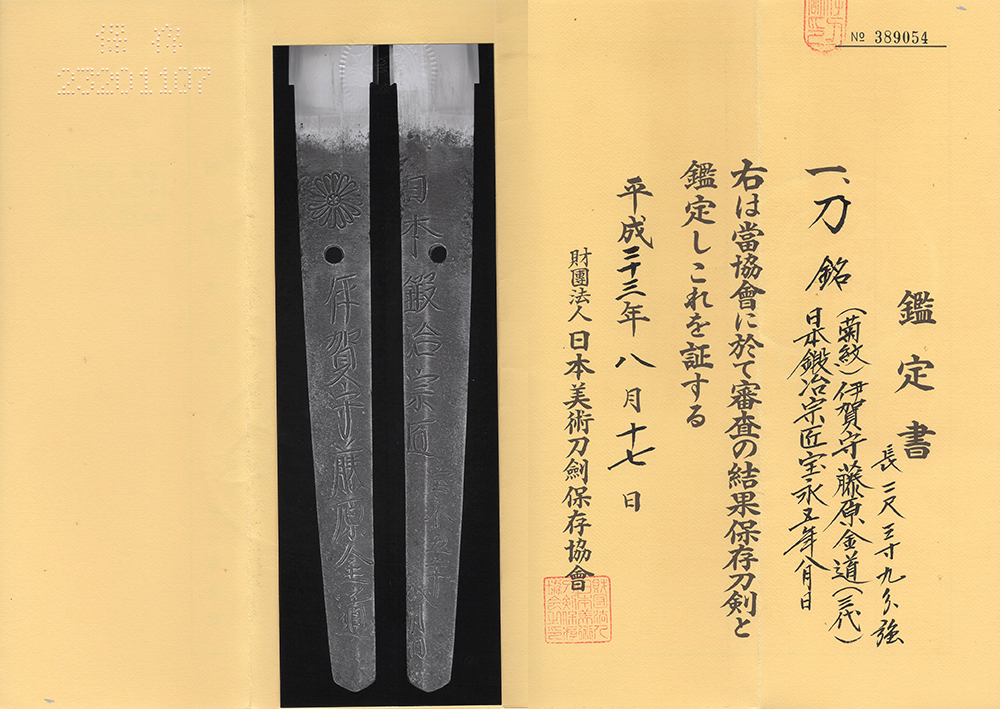 № 389054
鑑定書
一、刀 銘 (菊紋)伊賀守藤原金道(三代)
日本鍛冶宗匠宝永五年八月日
長二尺三寸九分強
右は當協會に於て審査の結果保存刀剣と
鑑定しこれを証する
平成二十三年八月十七日
財團法人日本美術刀劍保存協會
日本鍛冶宗匠
伊賀守藤原金道
保存
23201107